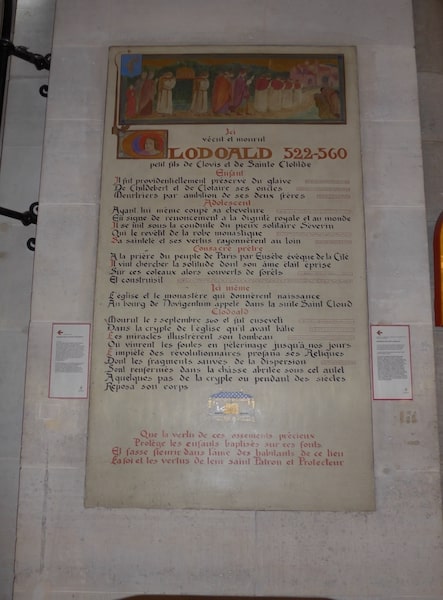 Ici
vécut et mourut
CLODOALD 522-560
petit fils de Clovis et de Sainte Clotilde
Enfant
Il fut providentiellement préservé du glaive
De Childebert et de Clotaire ses oncles
Meurtriers par ambition de ses deux frères
Adolescent
Ayant lui même coupé sa chevelure
En signe de renoncement à la dignité royale et au monde
Il se mit sous la conduite du pieux solitaire Séverin
Qui le revêtit de la robe monastique
Sa sainteté et ses vertus rayonnèrent au loin
Consacré prêtre
A la prière du peuple de Paris par Eusèbe évêque de la Cité
Il vint chercher la solitude dont son âme était éprise
Sur ces coteaux alors couverts de forêts
Et construisit
Ici même
L'église et le monastère qui donnèrent naissance
Au bourg de Novigentum appelé dans la suite Saint Cloud
Clodoald
Mourut le 7 septembre 560 et fut enseveli
Dans la crypte de l'église qu'il avait bâtie
Les miracles illustrèrent son tombeau
Où vinrent les foules en pèlerinage jusqu'à nos jours
L'impiété des révolutionnaires profana ses Reliques
Dont les fragments sauvés de la dispersion
Sont renfermés dans la châsse abritée sous cet autel
A quelques pas de la crypte où pendant des siècles
Reposa son corps
Que la vertu de ces ossements précieux
Protège les enfants baptisés sur ces fonts
Et fasse fleurir dans l'âme des habitants de ce lieu
La foi et les vertus de leur saint Patron et Protecteur